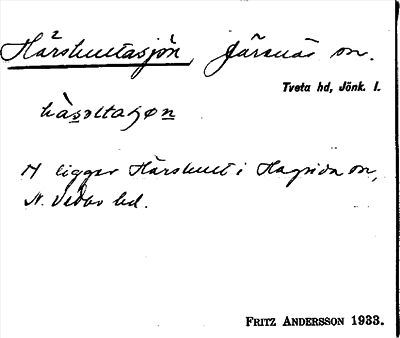 Härshultasjön, Järsnäs sn.
Tveta hd, Jönk. l.
hàsoltaʃøn
H ligger Härshult i Hagsida sn,
N. Vedbo hd.
FRITZ ANDERSSON 1933.